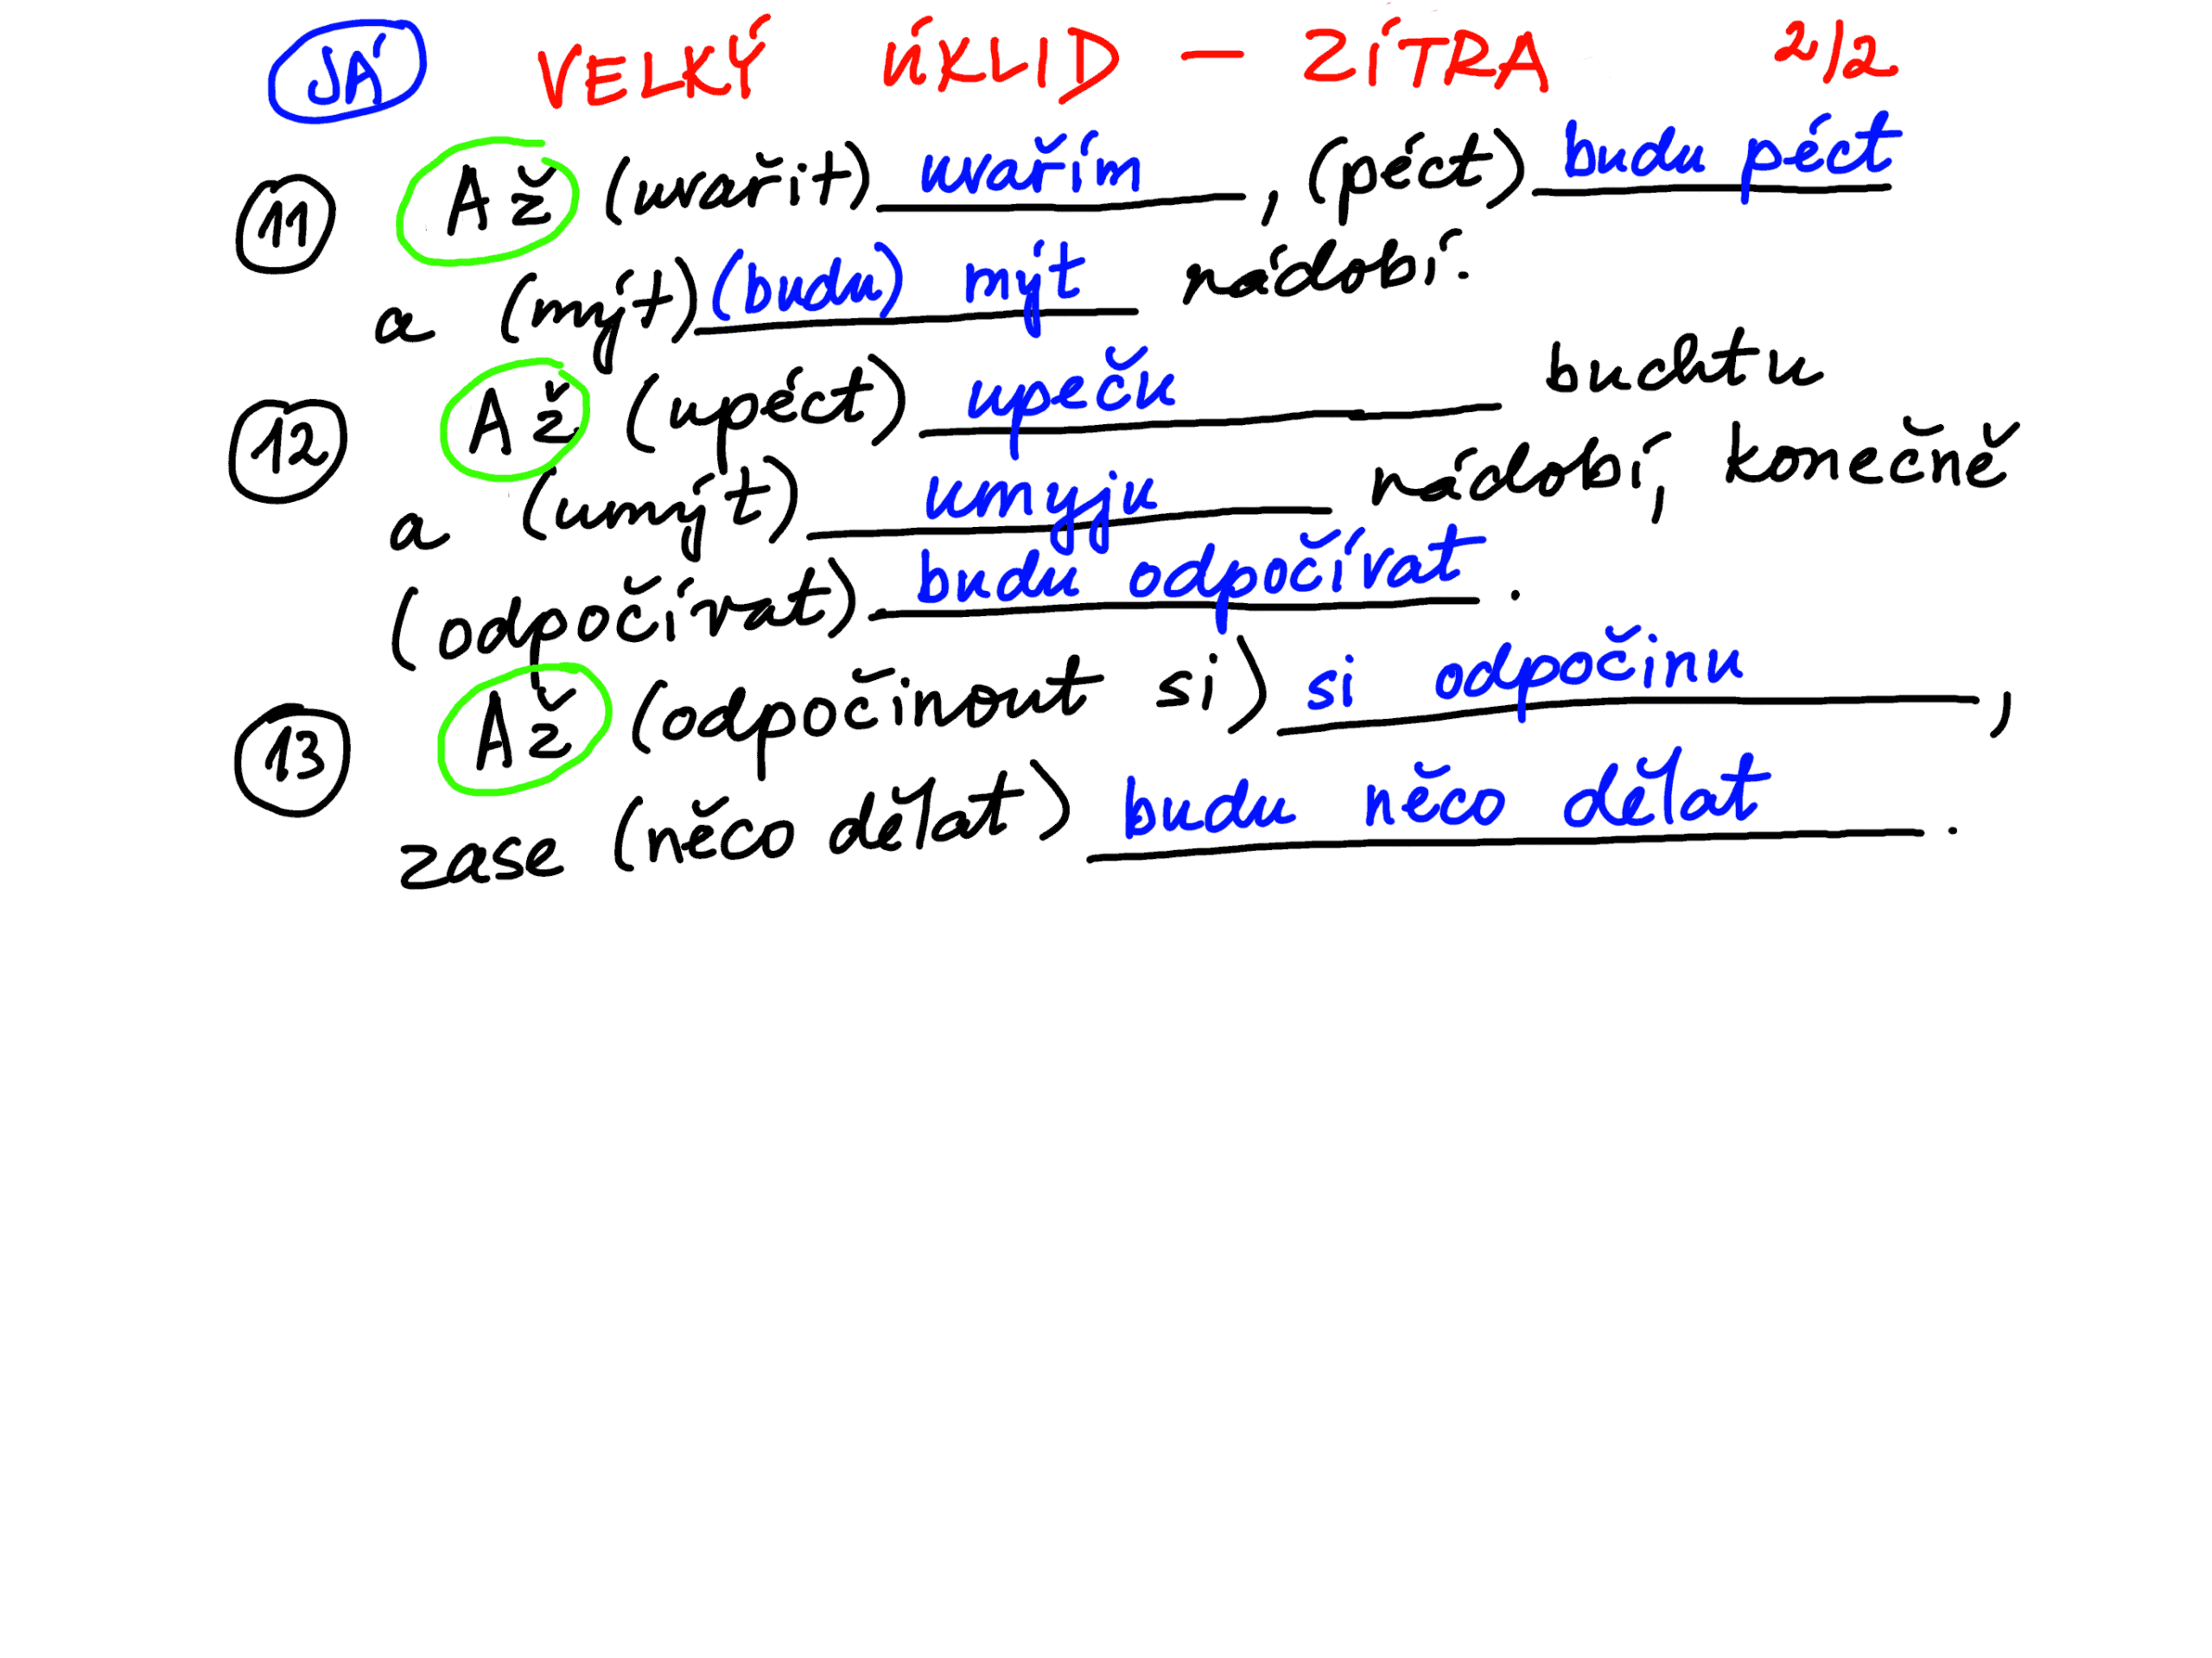 JÁ VELKÝ ÚKLID – ZÍTRA 2/2
11 Až (uvařit) uvařím, (péct) budu péct
a (mýt) (budu) mýt nádobí.
12 Až (upéct) upeču buchtu
a (umýt) umyju nádobí, konečně
(odpočívat) budu odpočívat.
13 Až (odpočinout si) si odpočinu,
zase (něco dělat) budu něco dělat.